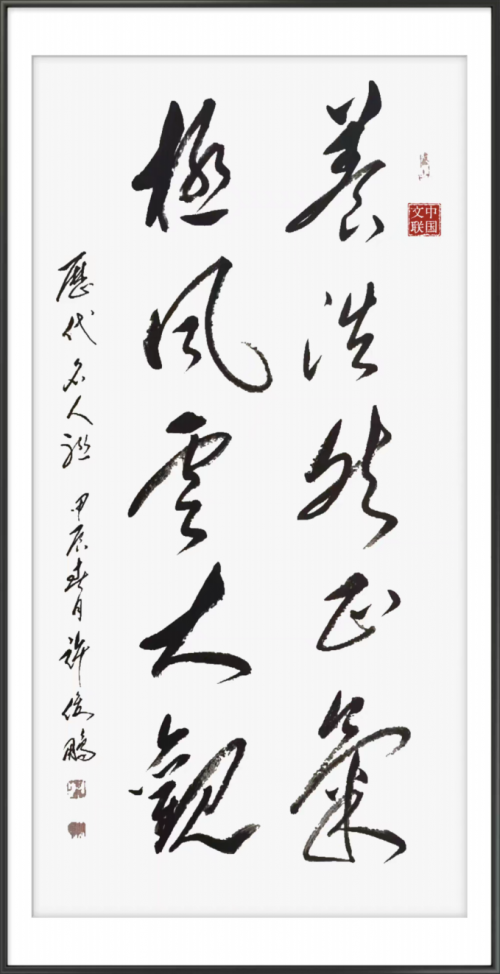 中国文联
養浩然正氣
極風雲大觀
歷代名人聯 甲辰春月 許俊鵬